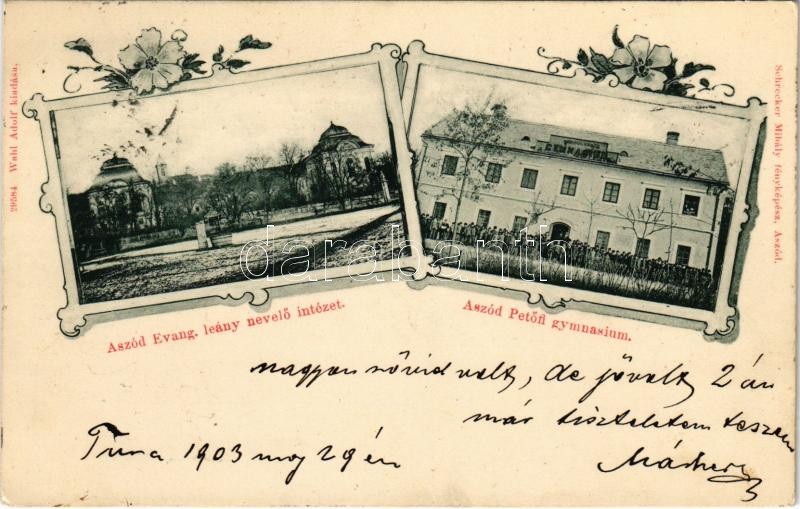 29584 Wahl Adolf kiadása.
Schrecker Mihály fényképész, Aszód.
GYMNASIUM
darabanth
Aszód Evang. leány nevelő intézet.
Aszód Petőfi gymnasium.
nagyon rövid volt, de jövalt 2 án
már tiszteletem teszem
Tura 1903 maj 29 én